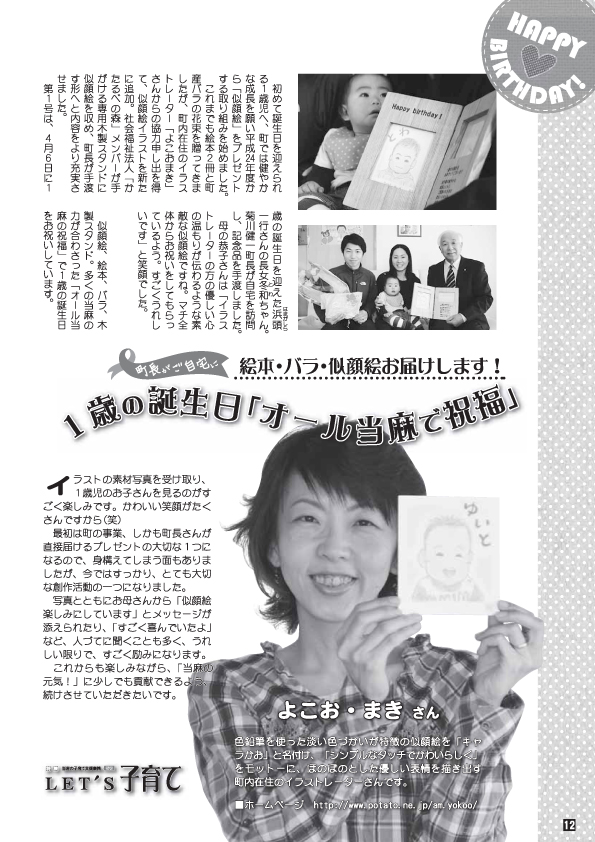 HAPPY
BIRTHDAY!
初めて誕生日を迎えられ
る1歳児へ、町では健やか
な成長を願い平成24年度か
ら「似顔絵」をプレゼント
する取り組みを始めました。
これまでも絵本2冊と町
産バラの花束を贈ってきま
したが、町内在住のイラス
トレーター「よこおまき」
さんからの協力申し出を得
て、似顔絵イラストを新た
に追加。社会福祉法人「か
たるべの森」メンバーが手
がける専用木製スタンドに
似顔絵を収め、町長が手渡
す形へと内容をより充実さ
せました。
第1号は、4月6日に1
歳の誕生日を迎えた浜頭
はまがしら
一行さんの長女冬和ちゃん。
菊川健一町長が自宅を訪問
し、記念品を手渡しました。
母の恭子さんは「イラス
トレーターの方の優しい心
の温もりが伝わるような素
敵な似顔絵ですね。マチ全
体からお祝いをしてもらっ
ているよう。すごくうれし
いです」と笑顔でした。
似顔絵、絵本、バラ、木
製スタンド。多くの当麻の
力が合わさった「オール当
麻の祝福」で1歳の誕生日
をお祝いしています。
Happy birthday!
町長がご自宅に
絵本・バラ・似顔絵お届けします!
1歳の誕生日「オール当麻で祝福」
イラストの素材写真を受け取り、
1歳児のお子さんを見るのがす
ごく楽しみです。かわいい笑顔がたく
さんですから(笑)
最初は町の事業、しかも町長さんが
直接届けるプレゼントの大切な1つに
なるので、身構えてしまう面もありま
したが、今ではすっかり、とても大切
な創作活動の一つになりました。
写真とともにお母さんから「似顔絵
楽しみにしています」とメッセージが
添えられたり、「すごく喜んでいたよ」
など、人づてに聞くことも多く、うれ
しい限りで、すごく励みになります。
これからも楽しみながら、「当麻の
元気!」に少しでも貢献できるよう、
続けさせていただきたいです。
ゆいと
よこお・まき さん
色鉛筆を使った淡い色づかいが特徴の似顔絵を「キャ
ラかお」と名付け、「シンプルなタッチでかわいらしく」
をモットーに、ほのぼのとした優しい表情を描き出す
町内在住のイラストレーターさんです。
■ホームページ http://www.potato.ne.jp/am.yokoo/
LET'S子育て
12